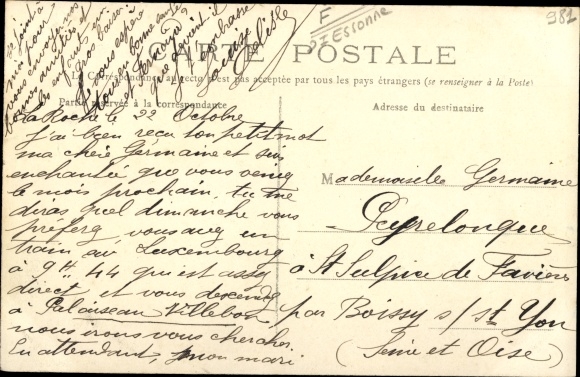 F
D'ESSONNE
981
CARTE POSTALE
La Correspondance au recto n'est pas acceptée par tous les pays étrangers (se renseigner à la Poste)
Partie réservée à la correspondance
Adresse du destinataire
La Roche le 22 Octobre
j'ai bien reçu ton petit mot
ma chère Germaine et suis
enchantée que vous veniez
le mois prochain, tu me
diras quel dimanche vous
préférez, vous avez un
train au Luxembourg
à 9H 44 qui est assez
direct et vous descendez
à Palaiseau Villebon
nous irons vous chercher
En attendant, mon mari
se joint à
moi pour
vous envoyer nos
amitiés et
les enfants un
gros baiser
Je vous espère
tous en bonne santé
et Fernand
que devient-il
je t'embrasse
Mademoiselle Germaine
Peyrelongue
à St Sulpice de Favières
par Boissy s/ St Yon
(Seine et Oise)